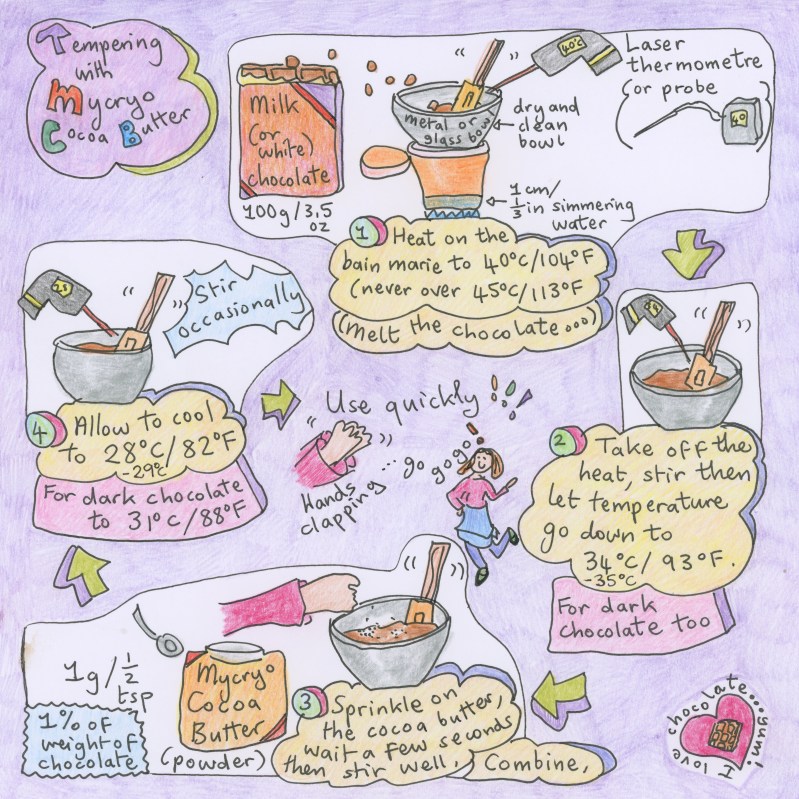 Tempering
with
Mycryo
Cocoa Butter
Milk
(or
white)
chocolate
100g/3,5
oz
metal or
glass bowl
dry and
clean
bowl
1 cm/
1/3 in simmering
water
40°C
Laser
thermometre
(or probe
40
1 Heat on the
bain marie to 40°C/104°F
(never over 45°C/113°F
(Melt the chocolate ...)
2 Take off the
heat, stir then
let temperature
go down to
34°C/ 93°F.
-35°C
For dark
chocolate too
1g/1/2
tsp
1% of
weight of
chocolate
Mycryo
Cocoa
Butter
(powder)
3 Sprinkle on
the cocoa butter,
wait a few seconds
then stir well,
Combine,
28
Stir
occasionally
4 Allow to cool
to 28°C/82°F
-29°C
For dark chocolate
to 31°C/88°F
Use quickly
... go go go!
Hands
clapping
I love chocolate...yum!